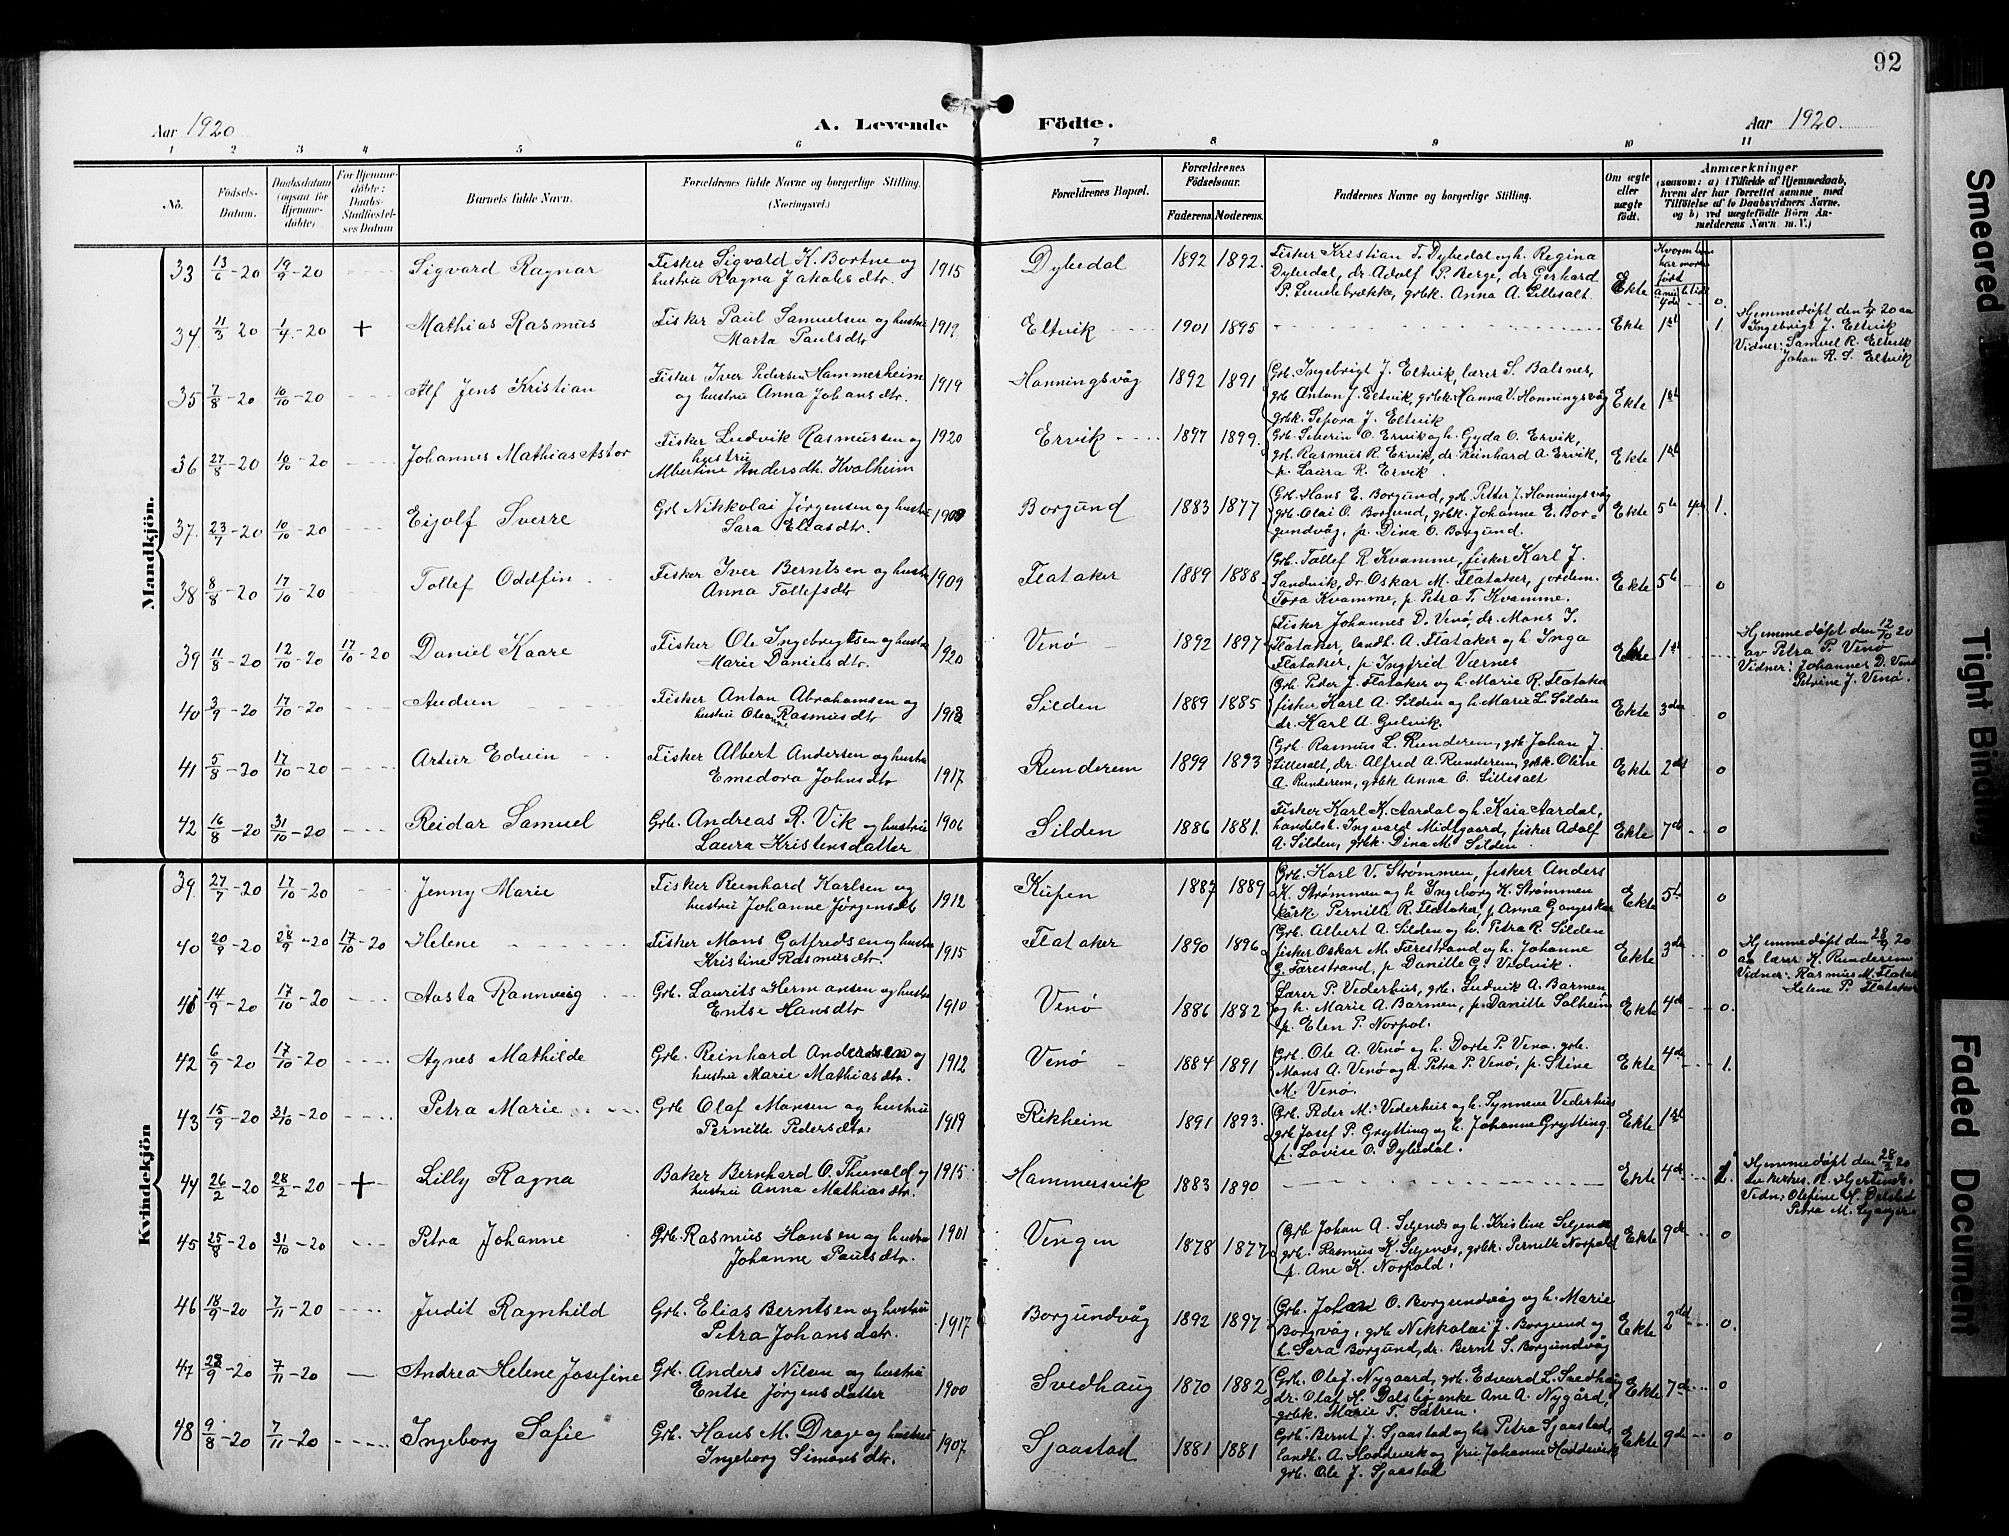 92
Aar 1920
A. Levende Födte.
Aar 1920.
1 2 3 4 5 6 7 8 9 10 11
No.
Födsels-Datum.
Daabsdatum (ogsaa for Hjemme-döbte)
For Hjemme-döbte: Daabs-Stadfæstel-ses Datum
Barnets fulde Navn.
Forældrenes fulde Navne og borgerlige Stilling. (Næringsvei.)
Forældrenes Bopæl.
Forældrenes Födselsaar.
Faderens. Moderens.
Faddernes Navne og borgerlige Stilling.
Om ægte eller uægte födt.
Anmærkninger
(saasom: a) i Tilfælde af Hjemmedaab, hvem der har forrettet samme, med Tilföielse af to Daabsvidners Navne, og b) ved uægtefödte Börn An-melderens Navn m. V.)
Mandkjön.
33 13/6-20 19/9-20 Sigvard Ragnar Fisker Sigvald K. Bortne og hustru Ragna Jakobsdtr. 1915 Dybedal 1892 1892. Fisker Kristian T. Dybedal og h. Regina Dybedal, dr. Adolf P. Berge, dr Gerhard P. Lundebrække, grbk. Anna A. Lillesalt Ekte 4de 0.
34. 11/3-20 1/4-20 + Mathias Rasmus Fisker Paul Samuelsen og hustru Marta Paulsdtr. 1919 Eltvik 1901 1895 Ekte 1st 1. Hjemmedøpt den 1/4 20 av Ingebrigt J. Eltvik Vidner: Samuel R. Eltvik Johan R. S. Eltvik
35 7/8-20 10/10-20 Alf Jens Kristian Fisker Iver Pedersen Hammerheim og hustru Anna Johansdtr. 1919 Honningsvåg 1892 1891 Grb. Ingebrigt J. Eltvik, lærer S. Balsnes, grb Anton J. Eltvik, grbk. Hanna V. Honningsvåg grbk. Sefora J. Eltvik Ekte 1st
36 27/8-20 10/10-20 Johannes Mathias Astor Fisker Ludvik Rasmussen og hustru Albertine Andersdtr. Hvalheim 1920 Ervik 1897 1899. Grb. Severin O. Ervik og h. Gyda O. Ervik, grb. Rasmus R. Ervik, dr. Reinhard A. Ervik, p. Laura R. Ervik Ekte 1st
37. 23/7-20 10/10-20 Eijolf Sverre Grb Nikkolai Jørgensen og hustru Sara Eliasdtr. 1908 Borgund 1883 1877 Grb. Hans E. Borgund, grb. Petter J. Honningsvåg grb. Olai O. Borgund, grbk. Johanne E. Bor-gundvåg, p. Dina O. Borgund. Ekte 5te 1.
38 8/8-20 17/10-20 Tollef Oddfin Fisker Iver Berntsen og hustru Anna Tollefsdtr 1909 Flataker 1889 1888 Grb. Tollef R Kvamme, fisker Karl J. Sandvik, dr. Oskar M. Flataker, jordem. Tora Kvamme, p. Petra T. Kvamme. Ekte 5te 0
39 11/8-20 12/10-20 17/10-20 Daniel Kaare Fisker Ole Ingebrigtsen og hustru Marie Danielsdtr. 1920 Venø 1892 1897 Fisker Johannes D. Venø, dr. Mons I. Flataker, landh. A. Flataker og h. Inga Flataker, p Ingfrid Værnes Ekte 1st Hjemmedøpt den 12/10 20 av Petra P. Venø Vidner: Johannes D. Venø Petrine J. Venø.
40 3/9-20 17/10-20 Audun Fisker Anton Abrahamsen og hustru Oleanne Rasmusdtr 1913 Silden 1889 1885 Grb. Peder J. Flataker og h. Marie R. Flataker fisker Karl A. Silden og h. Marie L. Silden dr. Karl A. Gulvik. Ekte 3de 0
41 5/8-20 17/10-20 Artur Edvin Fisker Albert Andersen og hustru Emedora Johnsdtr 1917 Runderem 1899 1893 Grb. Rasmus L. Runderem, grb Johan J. Lillesalt, dr. Alfred A. Runderem, grbk. Oline A. Runderem, grbk Anna O. Lillesalt Ekte 2det 0
42 16/8-20 31/10-20 Reidar Samuel Grb. Andreas R. Vik og hustru Laura Kristensdatter 1906 Silden 1886 1881. Fisker Karl K. Aardal og h. Kaia Aardal, handelsb. Ingvard Midtgaard, fisker Adolf A. Silden, grbk. Dina M. Silden Ekte 7de 0
Kvindekjön
39 27/7-20 17/10-20 Jenny Marie Fisker Reinhard Karlsen og hustru Johanne Jørgensdtr 1912 Kupen 1887 1889 Grb. Karl V. Strømmen, fisker Anders K. Strømmen og h Ingeborg K. Strømmen Pernille R. Flataker, p. Anna Gangeskar Ekte 5te 0
40 20/9-20 28/9-20 17/10-20 Helene Fisker Mons Gotfredsen og hustru Kristine Rasmusdtr. 1915 Flataker 1890 1896 Grb. Albert A. Silden og h. Petra R. Silden fisker Oskar M. Færestrand og h. Johanne G. Færestrand, p Danille G. Vedvik. Ekte 3de 0 Hjemmedøpt den 28/9 20 av lærer K. Runderem Vidner: Rasmus M. Flataker Helene P. Flataker
41 14/9-20 17/10-20 Aasta Rannveig Grb. Laurits Hermansen og hustru Entse Hansdtr 1910 Venø 1886 1882 Lærer P. Vederhus, grb. Ludvik A. Barmen og h. Marie A. Barmen, p. Danille Solheim p. Elen P. Norpol. Ekte 4de 0.
42 6/9-20 17/10-20 Agnes Mathilde Grb. Reinhard Anderssen og hustru Marie Mathiasdtr. 1912 Venø 1884 1891 Grb. Ole A. Venø og h. Dorte P. Venø. grb. Mons A. Venø og h. Petra P. Venø, p. Stine M. Venø. Ekte 4de 1.
43 15/9-20 31/10-20 Petra Marie Grb Olaf Monsen og hustru Pernille Pedersdtr. 1919 Rikheim 1891 1893. Grb. Peder M. Vederhus og h. Synneve Vederhus grb Josef P. Grytting og h. Johanne Grytting p. Lovise O. Dybedal. Ekte 1st
44 26/2-20 28/2-20 + Lilly Ragna Baker Bernhard O. Thunold og hustru Anna Mathiasdtr. 1915 Hammersvik 1883 1890 Ekte 4de Hjemmedøpt den 28/2 20 av kirkes. R. Hjertenes. Vidn: Olefine H. Petra M.
45 25/8-20 31/10-20 Petra Johanne Grb. Rasmus Hansen og hustru Johanne Paulsdtr. 1901 Vengen 1878 1877 Grb Johan A. Seljenes og h. Kristine Seljenes grb. Rasmus K. Seljenes, grbk. Pernille Norpold p. Ane K. Norpold. Ekte 9de 0
46 18/9-20 7/11-20 Judit Ragnhild Grb. Elias Berntsen og hustru Petra Johansdtr. 1917 Borgundvåg 1892 1897 Grb. Johan O. Borgundvåg og h. Marie Borgvåg, grb Nikkolai J. Borgund og h. Sara Borgund, dr. Bernt S. Borgundvåg Ekte 2det 0.
47 23/9-20 7/11-20 Andrea Helene Josefine Grb. Anders Nilsen og hustru Entse Jørgensdatter 1900 Svedhaug 1870 1882 Grb. Ole J. Nygaard, grb. Edvard L. Svedhaug dr. Olaf H. Dalsbø, enke Ane A. Nygård, grbk. Marie T. Sætren. Ekte 7de 0
48 9/8-20 7/11-20 Ingeborg Sofie Grb. Hans M. Drage og hustru Ingeborg Simonsdtr. 1907 Sjaastad 1881 1881 Grb. Bernt J. Sjaastad og h. Petra Sjaastad, landh. A. Hoddevik og fru Johanne Hoddevik grb. Ole J. Sjaastad Ekte 9de 0
Smeared
Tight Binding
Faded Document